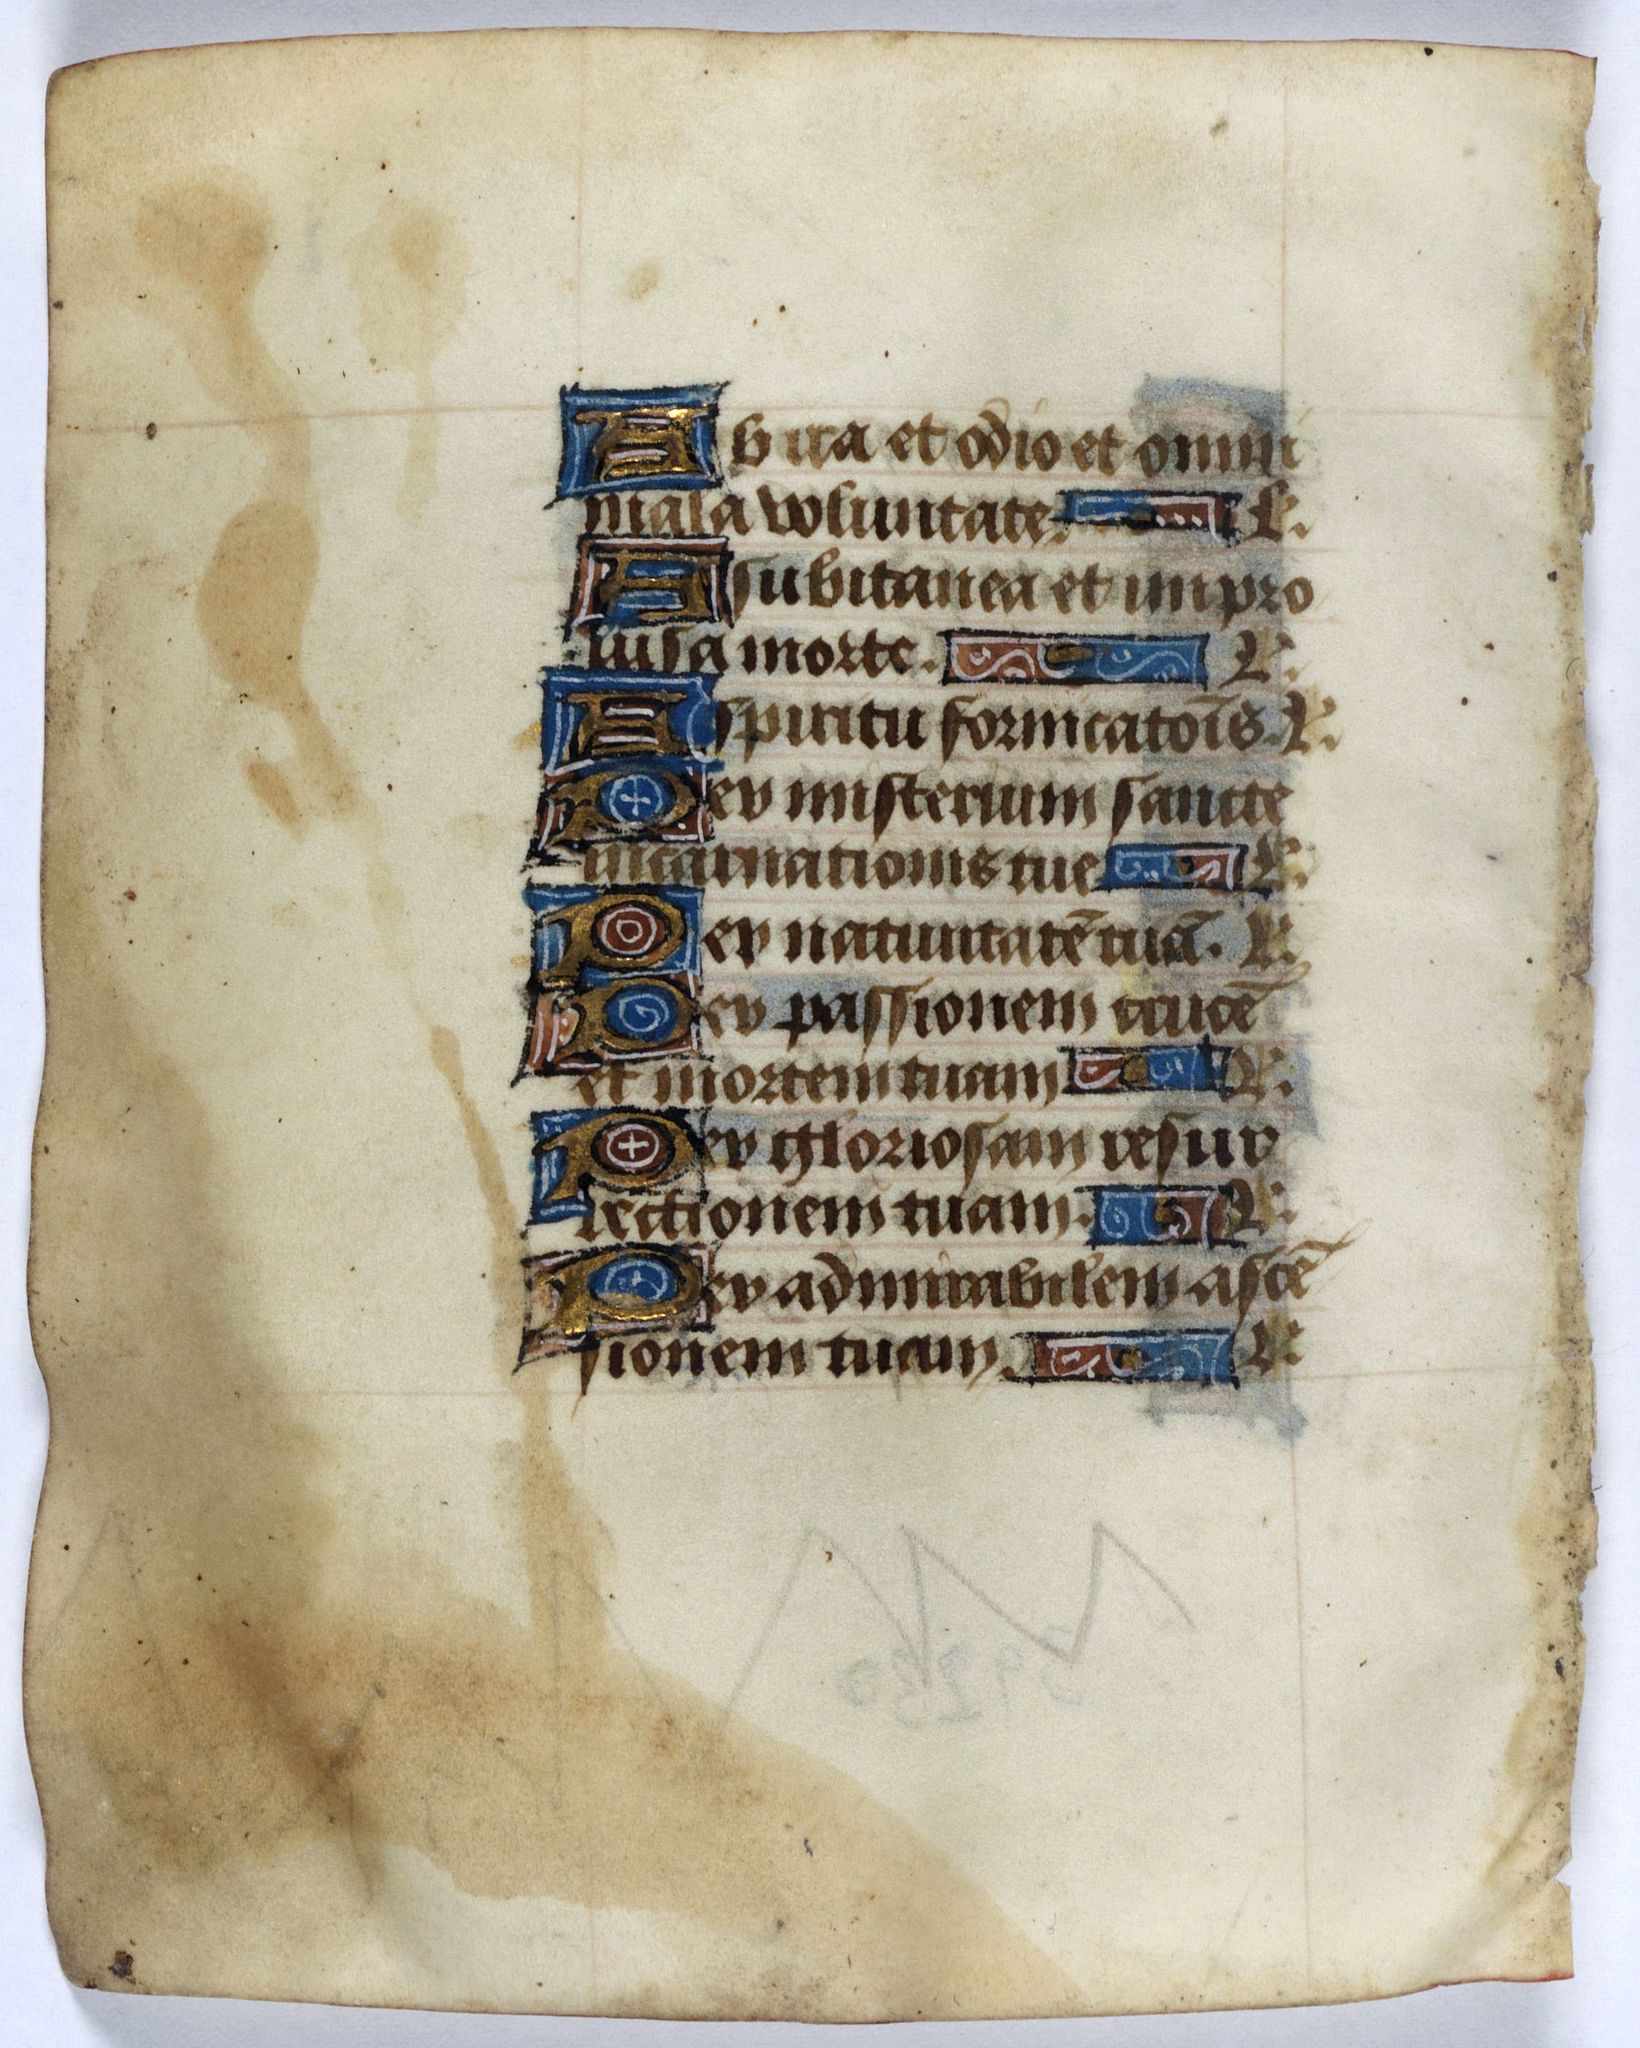 Ab ira et odio et omni
mala voluntate. L.
A subitanea et impro
uisa morte. L.
A spiritu fornicatōis. L.
Per misterium sancte
incarnationis tue L.
Per natiuitatē tuā. L.
Per passionem crucē
et mortem tuam L.
Per gloriosam resur
rectionem tuam. L.
Per admirabilem ascē
sionem tuam. L.